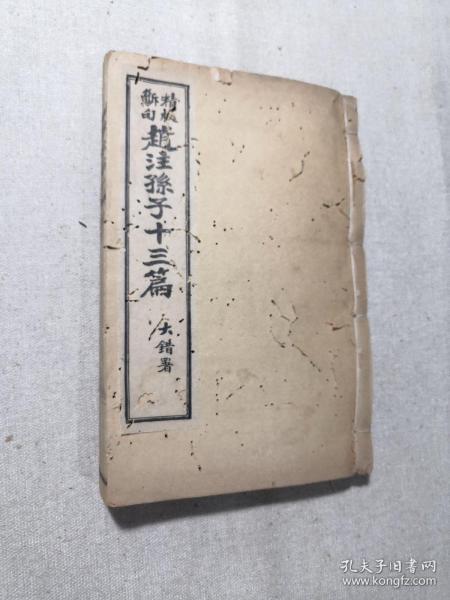 精校
斷句
趙注孫子十三篇
大錯署
孔夫子旧書网
www.kongfz.com